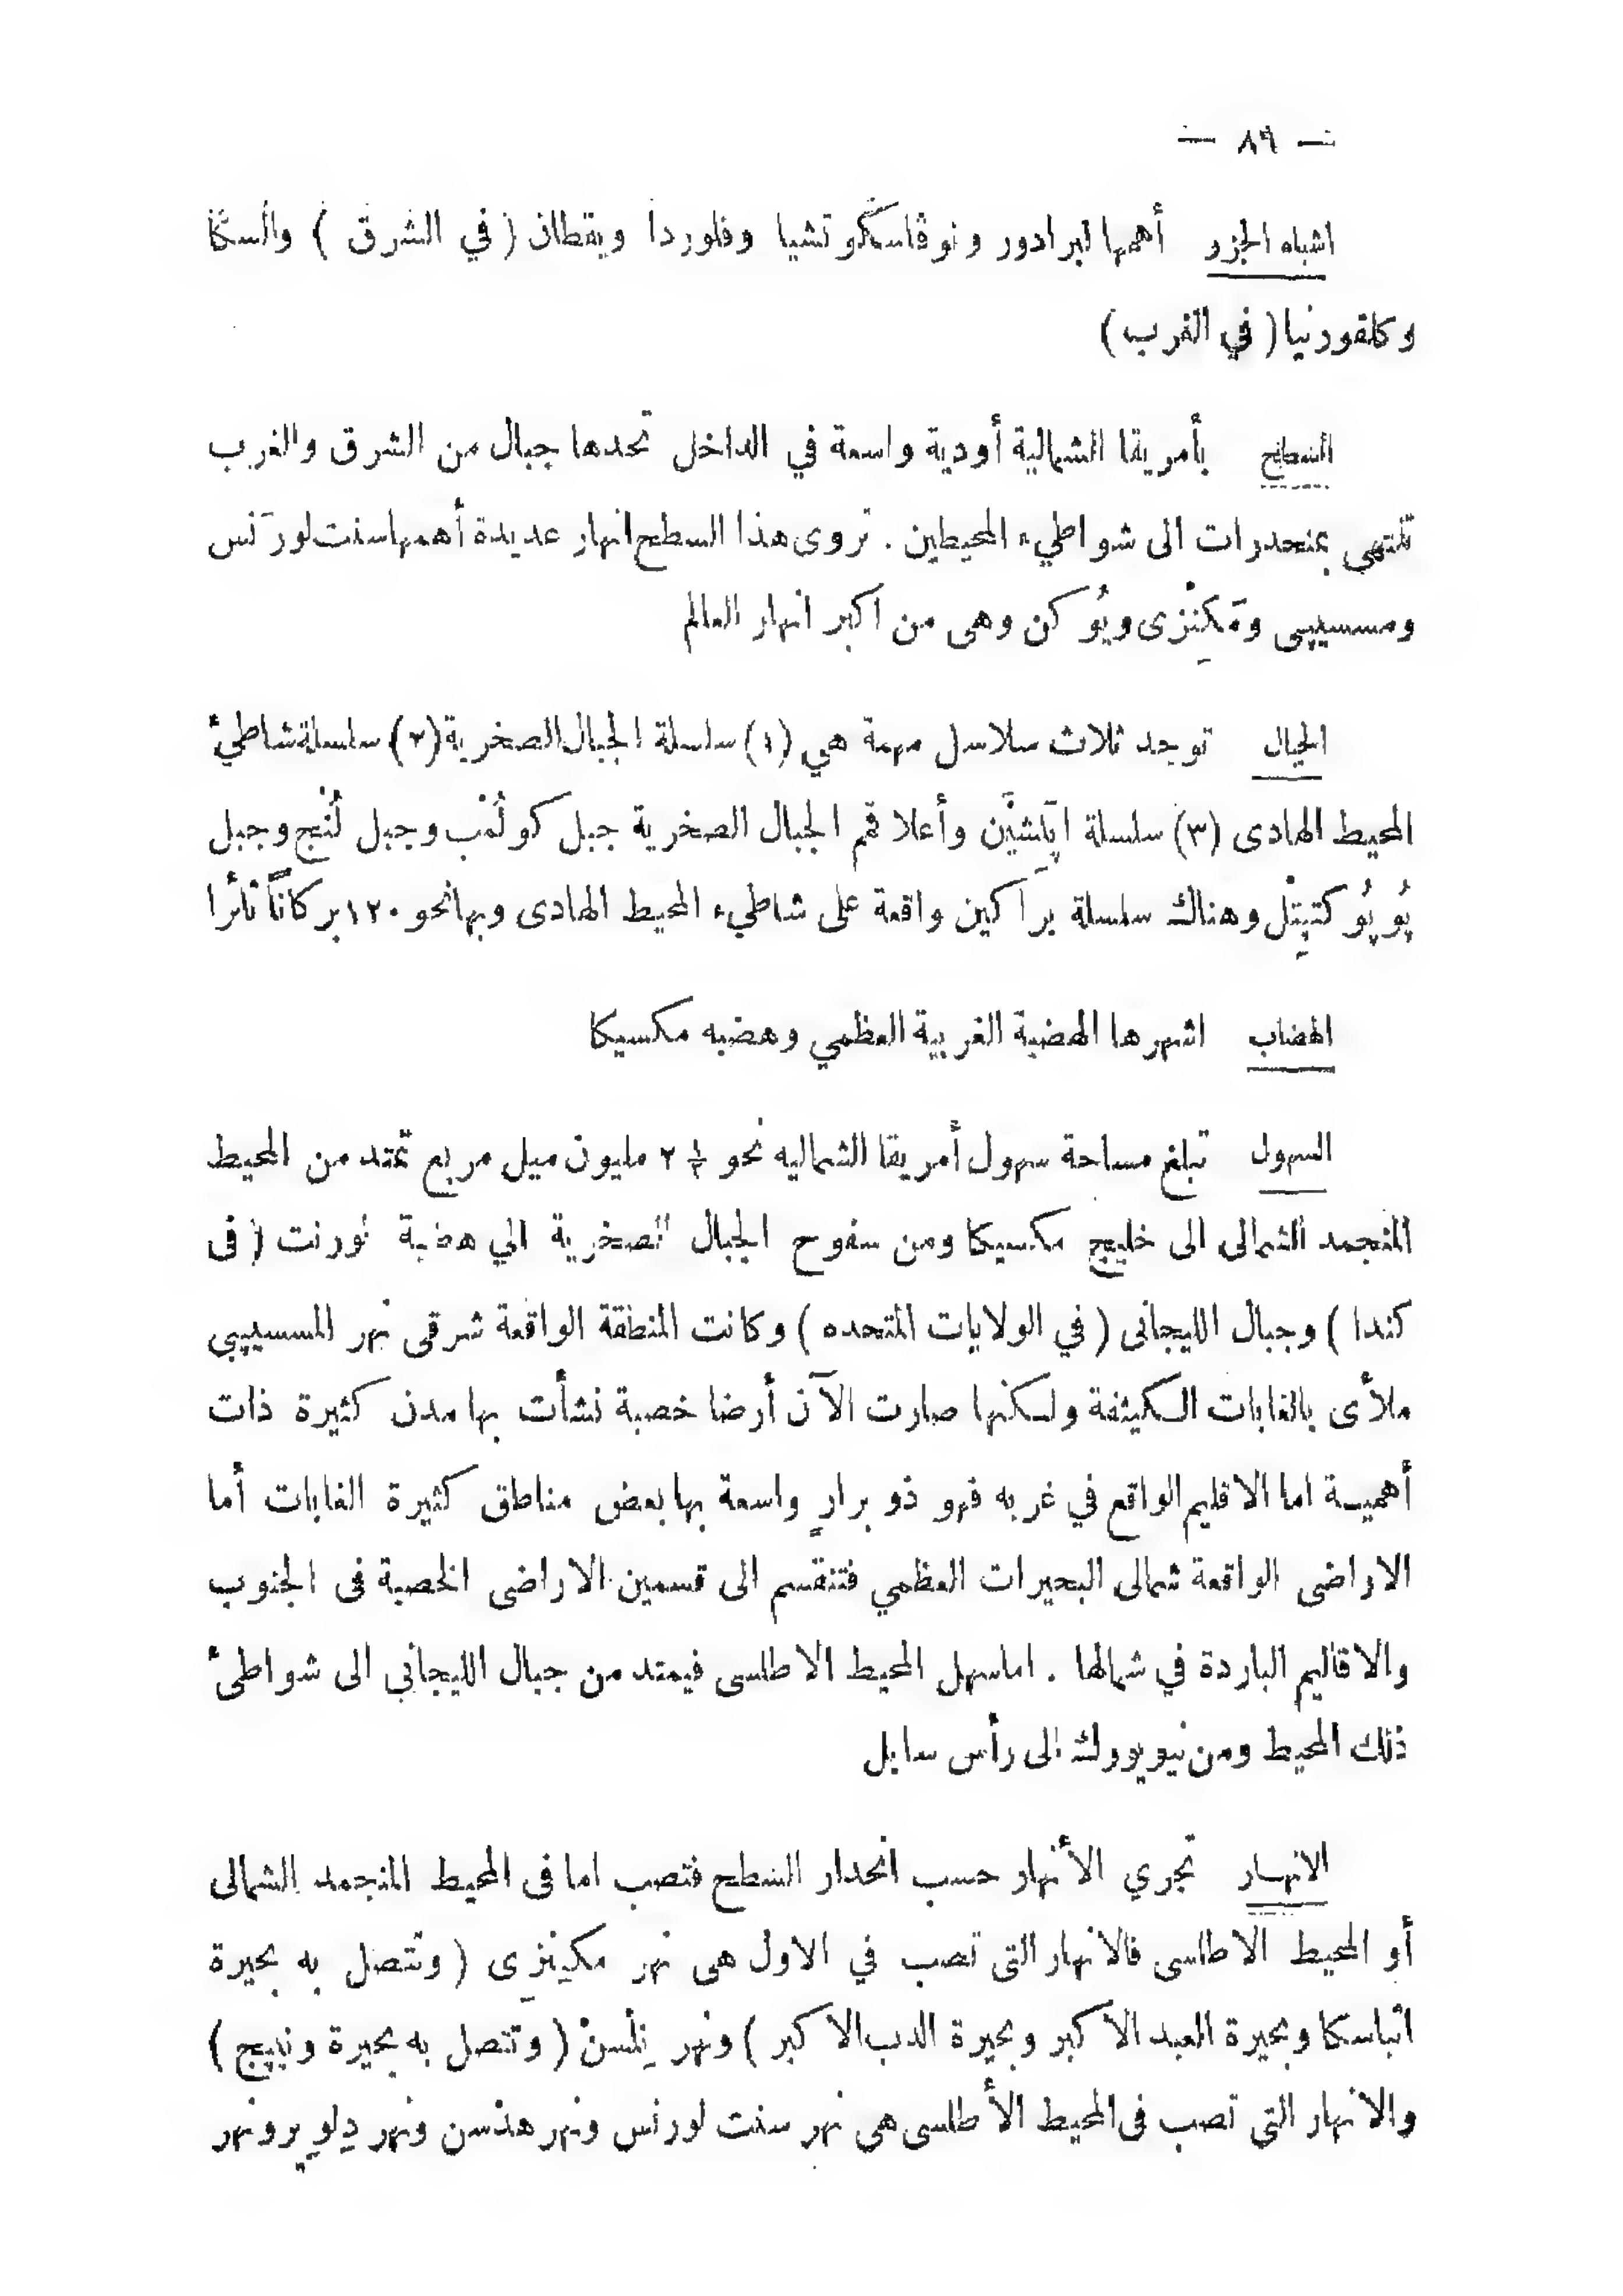 — ٨٩ —
اشباه الجزر أهمها لبرادور ونوڤاسكوتشيا وفلوردا ويقطان (في الشرق) وألسكا
وكلفورنيا (في الغرب)
السطح بأمريقا الشمالية أودية واسعة في الداخل تحدها جبال من الشرق والغرب
تنتهى بمنحدرات الى شواطيء المحيطين . تروى هذا السطح انهار عديدة أهمها سنت لورَنس
ومسسيپى ومَكِنْزى ويُوكن وهى من اكبر انهار العالم
الجبال توجد ثلاث سلاسل مهمة هي (١) سلسلة الجبال الصخرية (٢) سلسلة شاطيء
المحيط الهادى (٣) سلسلة اپَلِشيَن وأعلا قمم الجبال الصخرية جبل كولُمْب وجبل لُنْج وجبل
پُوپُوكتپِتْل وهناك سلسلة براكين واقعة على شاطيء المحيط الهادى وبها نحو ١٢٠ بركانًا ثائرا
الهضاب اشهرها الهضبة الغربية العظمي وهضبه مكسيكا
السهول تبلغ مساحة سهول أمريقا الشماليه نحو ½ ٢ مليون ميل مربع تمتد من المحيط
المنجمد الشمالى الى خليج مكسيكا ومن سفوح الجبال الصخرية الي هضبة نورنت (فى
كندا) وجبال الليجانى (في الولايات المتحده) وكانت المنطقة الواقعة شرقى نهر المسسيپي
ملأى بالغابات الكثيفة ولكنها صارت الآن أرضا خصبة نشأت بها مدن كثيرة ذات
أهمية اما الاقليم الواقع في غربه فهو ذو برارٍ واسعة بها بعض مناطق كثيرة الغابات أما
الاراضى الواقعة شمالى البحيرات العظمي فتنقسم الى قسمين الاراضى الخصبة فى الجنوب
والاقاليم الباردة في شمالها . اما سهل المحيط الاطلسى فيمتد من جبال الليجانى الى شواطئ
ذلك المحيط ومن نيويورك الى رأس سابل
الانهار تجري الأنهار حسب انحدار السطح فتصب اما فى المحيط المنجمد الشمالى
أو المحيط الاطلسى فالانهار التى تصب في الاول هى نهر مكِنزِى (وتتصل به بحيرة
اثباسكا وبحيرة العبد الاكبر وبحيرة الدب الاكبر) ونهر نِلْسنْ (وتتصل به بحيرة ونيپج)
والانهار التي تصب فى المحيط الأطلسى هى نهر سنت لورنس ونهر هدسن ونهر دِلوِير ونهر